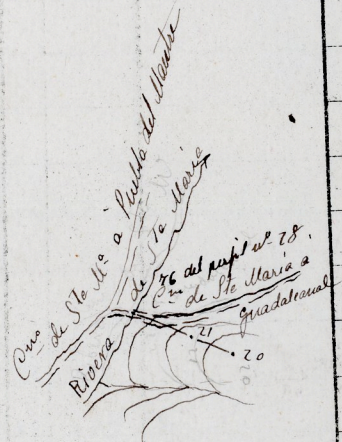 Cno de Ste Ma a Puebla del Maestre
Rivera de Sta Maria
76 del perfil nº 28.
Cno de Ste Maria a
Guadalcanal
21
20